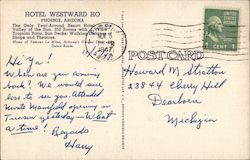 HOTEL WESTWARD HO
PHOENIX, ARIZONA
The Only Year-Around Resort Hotel in
Valley of the Sun. 350 Rooms with
Tropical Patio, Sun Decks
Shops and Theatres.
Home of Famous La Mina, Arizona's
Room
POST CARD
Hi Ya!
When are you coming
back? We would sure
like to see you. Attended
Monte Mansfield opening in
Tucson yesterday — What
a time!
Regards
Harry
1947
1 CENT 1
Howard M Stratton
Cherry Hill
Dearborn
Michigan